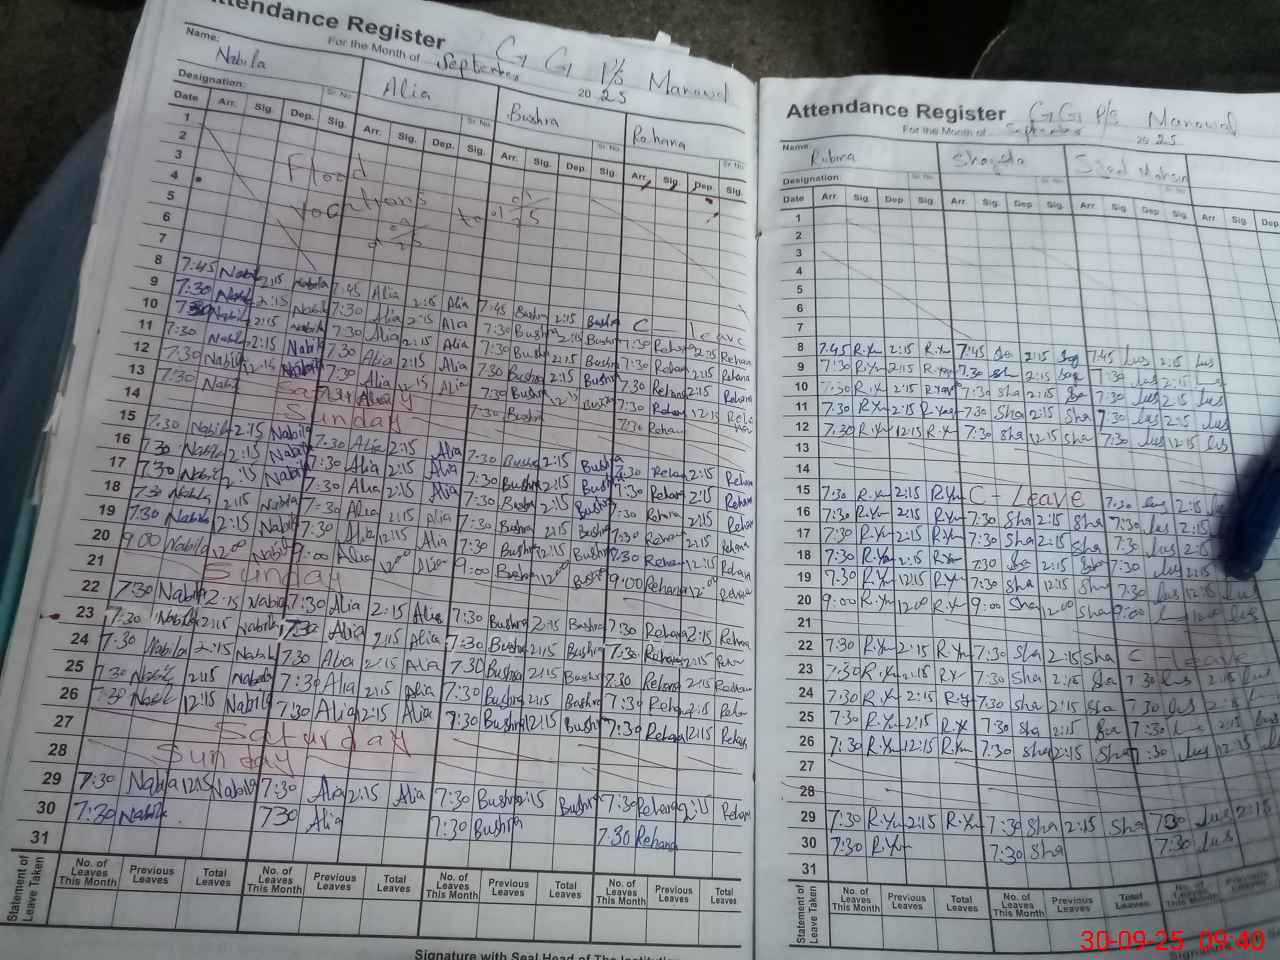 Attendance Register G G P/S Manawal
For the Month of September 2025
Name: Nabila Alia Bushra Rehana
Designation: Sr. No. Sr. No. Sr. No. Sr. No.
Date Arr. Sig. Dep. Sig. Arr. Sig. Dep. Sig. Arr. Sig. Dep. Sig. Arr. Sig. Dep. Sig.
1
2
3 Flood
4 vocations to
5
6
7
8 7:45 Nabila 2:15 Nabila 7:45 Alia 2:15 Alia 7:45 Bushra 2:15 Bushra C — leave
9 7:30 Nabila 2:15 Nabila 7:30 Alia 2:15 Alia 7:30 Bushra 2:15 Bushra 7:30 Rehana 2:15 Rehana
10 7:30 Nabila 2:15 Nabila 7:30 Alia 2:15 Alia 7:30 Bushra 2:15 Bushra 7:30 Rehana 2:15 Rehana
11 7:30 Nabila 2:15 Nabila 7:30 Alia 2:15 Alia 7:30 Bushra 2:15 Bushra 7:30 Rehana 2:15 Rehana
12 7:30 Nabila 12:15 Nabila 7:30 Alia 12:15 Alia 7:30 Bushra 12:15 Bushra 7:30 Rehana 12:15 Rehana
13 7:30 Nabi Saturday 7:30 Bushra 7:30 Rehana
14 Sunday
15 7:30 Nabila 2:15 Nabila 7:30 Alia 2:15 Alia 7:30 Bushra 2:15 Bushra 7:30 Rehana 2:15 Rehana
16 7:30 Nabila 2:15 Nabila 7:30 Alia 2:15 Alia 7:30 Bushra 2:15 Bushra 7:30 Rehana 2:15 Rehana
17 7:30 Nabila 2:15 Nabila 7:30 Alia 2:15 Alia 7:30 Bushra 2:15 Bushra 7:30 Rehana 2:15 Rehana
18 7:30 Nabila 2:15 Nabila 7:30 Alia 2:15 Alia 7:30 Bushra 2:15 Bushra 7:30 Rehana 2:15 Rehana
19 7:30 Nabila 12:15 Nabila 7:30 Alia 12:15 Alia 7:30 Bushra 12:15 Bushra 7:30 Rehana 12:15 Rehana
20 9:00 Nabila 12:00 Nabila 9:00 Alia 12:00 Alia 9:00 Bushra 12:00 Bushra 9:00 Rehana 12:00 Rehana
21 Sunday
22 7:30 Nabila 2:15 Nabila 7:30 Alia 2:15 Alia 7:30 Bushra 2:15 Bushra 7:30 Rehana 2:15 Rehana
23 7:30 Nabila 2:15 Nabila 7:30 Alia 2:15 Alia 7:30 Bushra 2:15 Bushra 7:30 Rehana 2:15 Rehana
24 7:30 Nabila 2:15 Nabila 7:30 Alia 2:15 Alia 7:30 Bushra 2:15 Bushra 7:30 Rehana 2:15 Rehana
25 7:30 Nabila 2:15 Nabila 7:30 Alia 2:15 Alia 7:30 Bushra 2:15 Bushra 7:30 Rehana 2:15 Rehana
26 7:30 Nabila 12:15 Nabila 7:30 Alia 12:15 Alia 7:30 Bushra 12:15 Bushra 7:30 Rehana 12:15 Rehana
27 Saturday
28 Sunday
29 7:30 Nabila 12:15 Nabila 7:30 Alia 2:15 Alia 7:30 Bushra 2:15 Bushra 7:30 Rehana 2:15 Rehana
30 7:30 Nabila 730 Alia 7:30 Bushra 7:30 Rehana
31
Statement of Leave Taken No. of Leaves This Month Previous Leaves Total Leaves No. of Leaves This Month Previous Leaves Total Leaves No. of Leaves This Month Previous Leaves Total Leaves No. of Leaves This Month Previous Leaves Total Leaves
Signature with Seal Head of The Institution
Attendance Register G G P/S Manawal
For the Month of September 2025
Name: Rubina Shageda Syed Mohsin
Designation: Sr. No. Sr. No. Sr. No.
Date Arr. Sig. Dep. Sig. Arr. Sig. Dep. Sig. Arr. Sig. Dep. Sig. Arr Sig. Dep.
1
2
3
4
5
6
7
8 7:45 R.Yu 2:15 R.Yu 7:45 Sha 2:15 7:45 2:15
9 7:30 R.Yu 2:15 R.Yu 7:30 Sha 2:15 7:30 2:15
10 7:30 R.Yu 2:15 R.Yu 7:30 Sha 2:15 7:30 2:15
11 7:30 R.Yu 2:15 R.Yu 7:30 Sha 2:15 Sha 7:30 2:15
12 7:30 R.Yu 12:15 R.Yu 7:30 Sha 12:15 Sha 7:30 12:15
13
14
15 7:30 R.Yu 2:15 R.Yu C - Leave 7:30 2:15
16 7:30 R.Yu 2:15 R.Yu 7:30 Sha 2:15 Sha 7:30 2:15
17 7:30 R.Yu 2:15 R.Yu 7:30 Sha 2:15 Sha 7:30 2:15
18 7:30 R.Yu 2:15 R.Yu 7:30 Sha 2:15 Sha 7:30 2:15
19 7:30 R.Yu 12:15 R.Yu 7:30 Sha 12:15 Sha 7:30 12:15
20 9:00 R.Yu 12:00 R.Yu 9:00 Sha 12:00 Sha 9:00 12:00
21
22 7:30 R.Yu 2:15 R.Yu 7:30 Sha 2:15 Sha C — leave
23 7:30 R.Yu 2:15 R.Y 7:30 Sha 2:15 Sha 7:30 2:15
24 7:30 R.Yu 2:15 R.Y 7:30 Sha 2:15 Sha 7:30 2:15
25 7:30 R.Yu 2:15 R.Y 7:30 Sha 2:15 Sha 7:30 2:15
26 7:30 R.Yu 12:15 R.Yu 7:30 Sha 12:15 Sha 7:30 12:15
27
28
29 7:30 R.Yu 2:15 R.Yu 7:30 Sha 2:15 Sha 7:30 2:15
30 7:30 R.Yu 7:30 Sha 7:30
31
Statement of Leave Taken No. of Leaves This Month Previous Leaves Total Leaves No. of Leaves This Month Previous Leaves Total Leaves No. of Leaves This Month Previous Leaves
30-09-25 09:40